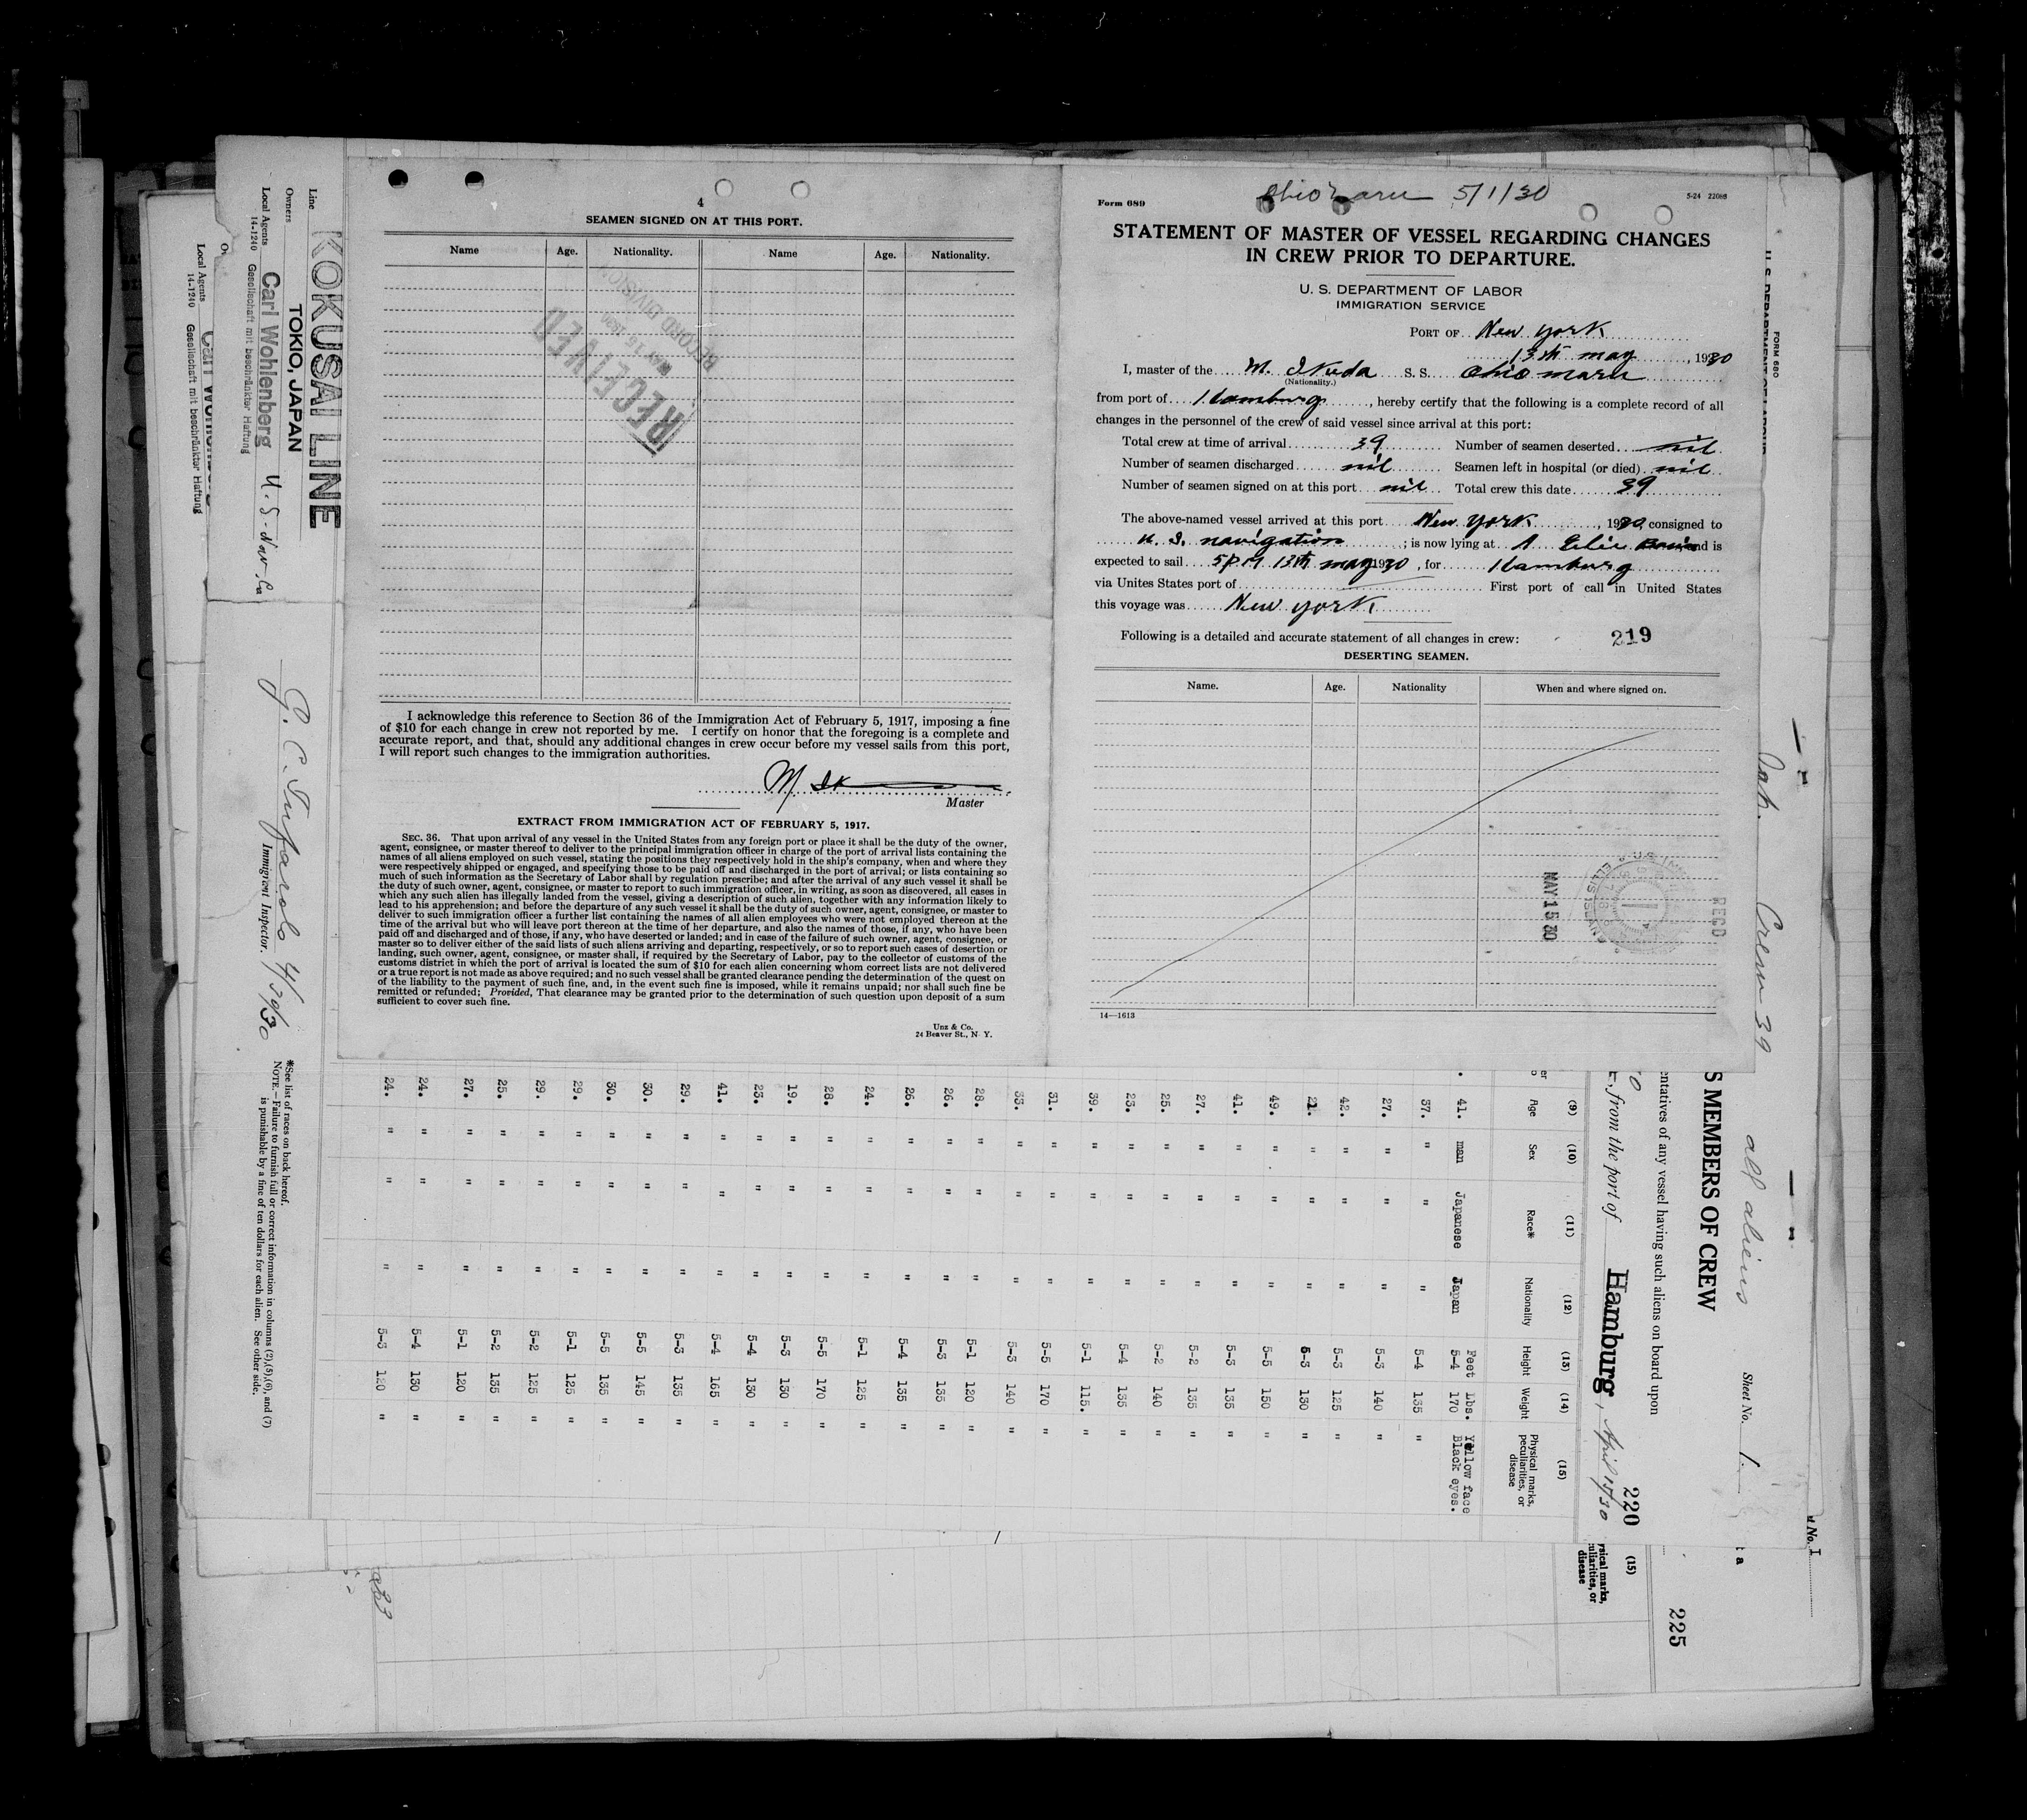 4
SEAMEN SIGNED ON AT THIS PORT.
Name Age. Nationality. Name Age. Nationality.
RECEIVED
MAY 16 1930
RECORD DIVISION
I acknowledge this reference to Section 36 of the Immigration Act of February 5, 1917, imposing a fine
of $10 for each change in crew not reported by me. I certify on honor that the foregoing is a complete and
accurate report, and that, should any additional changes in crew occur before my vessel sails from this port,
I will report such changes to the immigration authorities.
Master
EXTRACT FROM IMMIGRATION ACT OF FEBRUARY 5, 1917.
SEC. 36. That upon arrival of any vessel in the United States from any foreign port or place it shall be the duty of the owner,
agent, consignee, or master thereof to deliver to the principal immigration officer in charge of the port of arrival lists containing the
names of all aliens employed on such vessel, stating the positions they respectively hold in the ship's company, when and where they
were respectively shipped or engaged, and specifying those to be paid off and discharged in the port of arrival; or lists containing so
much of such information as the Secretary of Labor shall by regulation prescribe; and after the arrival of any such vessel it shall be
the duty of such owner, agent, consignee, or master to report to such immigration officer, in writing, as soon as discovered, all cases in
which any such alien has illegally landed from the vessel, giving a description of such alien, together with any information likely to
lead to his apprehension; and before the departure of any such vessel it shall be the duty of such owner, agent, consignee, or master to
deliver to such immigration officer a further list containing the names of all alien employees who were not employed thereon at the
time of the arrival but who will leave port thereon at the time of her departure, and also the names of those, if any, who have been
paid off and discharged and of those, if any, who have deserted or landed; and in case of the failure of such owner, agent, consignee, or
master so to deliver either of the said lists of such aliens arriving and departing, respectively, or so to report such cases of desertion or
landing, such owner, agent, consignee, or master shall, if required by the Secretary of Labor, pay to the collector of customs of the
customs district in which the port of arrival is located the sum of $10 for each alien concerning whom correct lists are not delivered
or a true report is not made as above required; and no such vessel shall be granted clearance pending the determination of the quest on
of the liability to the payment of such fine, and, in the event such fine is imposed, while it remains unpaid; nor shall such fine be
remitted or refunded; Provided, That clearance may be granted prior to the determination of such question upon deposit of a sum
sufficient to cover such fine.
Unz & Co.
24 Beaver St., N Y.
Ohio Maru 5/1/30
Form 689
5-24 22088
STATEMENT OF MASTER OF VESSEL REGARDING CHANGES
IN CREW PRIOR TO DEPARTURE.
U. S. DEPARTMENT OF LABOR
IMMIGRATION SERVICE
PORT OF New York
13th may, 1930
I, master of the M. Ikuda S. S. Ohio maru
(Nationality.)
from port of Hamburg, hereby certify that the following is a complete record of all
changes in the personnel of the crew of said vessel since arrival at this port:
Total crew at time of arrival 39 Number of seamen deserted nil
Number of seamen discharged nil Seamen left in hospital (or died) nil
Number of seamen signed on at this port nil Total crew this date 39
The above-named vessel arrived at this port New York, 1930, consigned to
U. S. navigation; is now lying at and is
expected to sail 5 P.M 13th may 1930, for Hamburg
via Unites States port of First port of call in United States
this voyage was New York
Following is a detailed and accurate statement of all changes in crew:
219
DESERTING SEAMEN.
Name. Age. Nationality When and where signed on.
MAY 15 30
REC'D
14—1613
Line KOKUSAI LINE
Owners TOKIO, JAPAN
Local Agents Carl Wohlenberg U. S. Nav. Co
14-1240 Gesellschaft mit beschränkter Haftung
Local Agents
14-1240 Gesellschaft mit beschränkter Haftung
4/30/30
Immigrant Inspector.
*See list of races on back hereof.
NOTE.—Failure to furnish full or correct information in columns (2),(5),(6), and (7)
is punishable by a fine of ten dollars for each alien. See other side.
FORM 680
Crew 39
all aliens
Sheet No. 1
S MEMBERS OF CREW
entatives of any vessel having such aliens on board upon
, from the port of Hamburg, April 15/30
220
225
(9) (10) (11) (12) (13) (14) (15)
Age Sex Race* Nationality Height Weight Physical marks, peculiarities, or disease
Feet Lbs.
41. man Japanese Japan 5-4 170 Yellow face Black eyes.
37. " " " 5-4 135 "
27. " " " 5-3 140 "
42. " " " 5-3 125 "
21. " " " 5-3 130 "
49. " " " 5-5 150 "
41. " " " 5-3 135 "
27. " " " 5-2 135 "
25. " " " 5-2 140 "
23. " " " 5-4 135 "
39. " " " 5-1 115. "
31. " " " 5-5 170 "
33. " " " 5-3 140 "
28. " " " 5-1 120 "
26. " " " 5-3 135 "
26. " " " 5-4 135 "
24. " " " 5-1 125 "
28. " " " 5-5 170 "
19. " " " 5-3 130 "
23. " " " 5-4 130 "
41. " " " 5-4 165 "
29. " " " 5-3 135 "
30. " " " 5-5 145 "
30. " " " 5-5 135 "
29. " " " 5-1 125 "
29. " " " 5-2 125 "
25. " " " 5-2 135 "
27. " " " 5-1 120 "
24. " " " 5-4 130 "
24. " " " 5-3 120 "
(15)